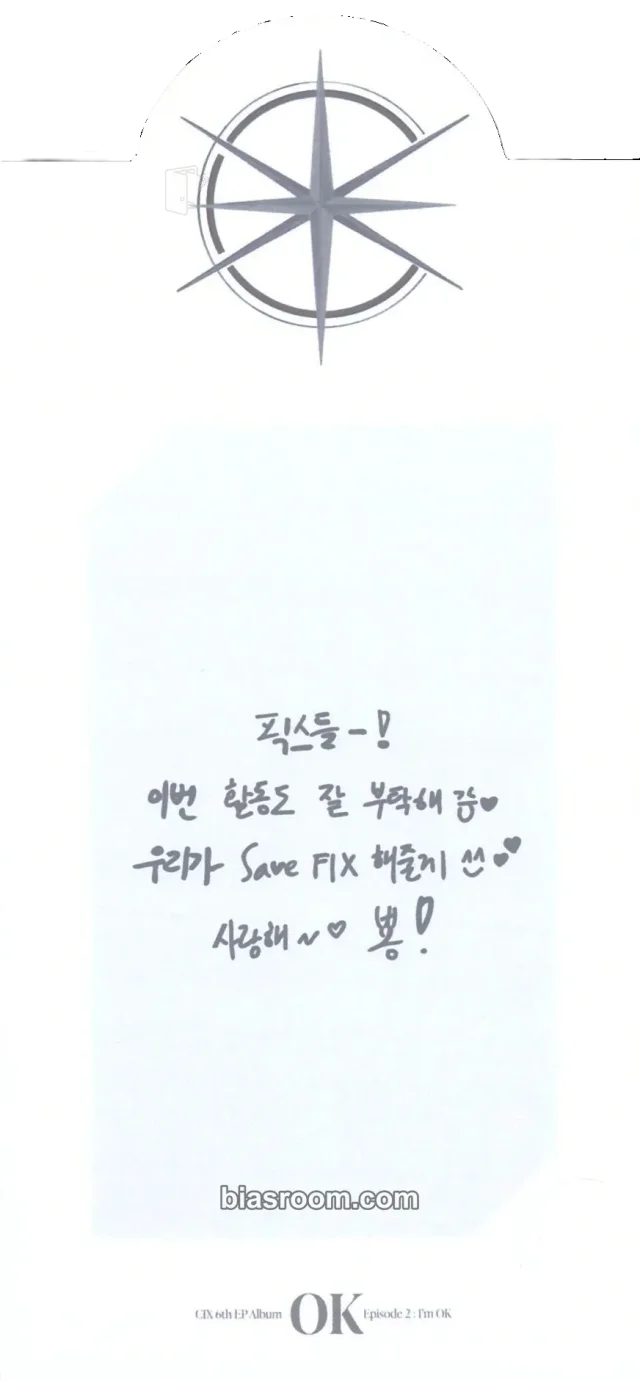 픽스들-!
이번 활동도 잘 부탁해 감♥
우리가 Save FIX 해줄게 쓰♥♥
사랑해~♡ 뽕!
biasroom.com
CIX 6th EP Album OK Episode 2 : I'm OK